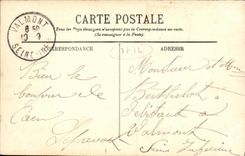 CARTE POSTALE
Tous les pays étrangers n'acceptent pas la Correspondance au recto
(Se renseigner à la Poste)
CORRESPONDANCE
ADRESSE
VALMONT
SEINE-INF
Bien le
bonjour de
Caen
Monsieur et Mme
Berthelot
Débitant à
Valmont
Seine Inférieure